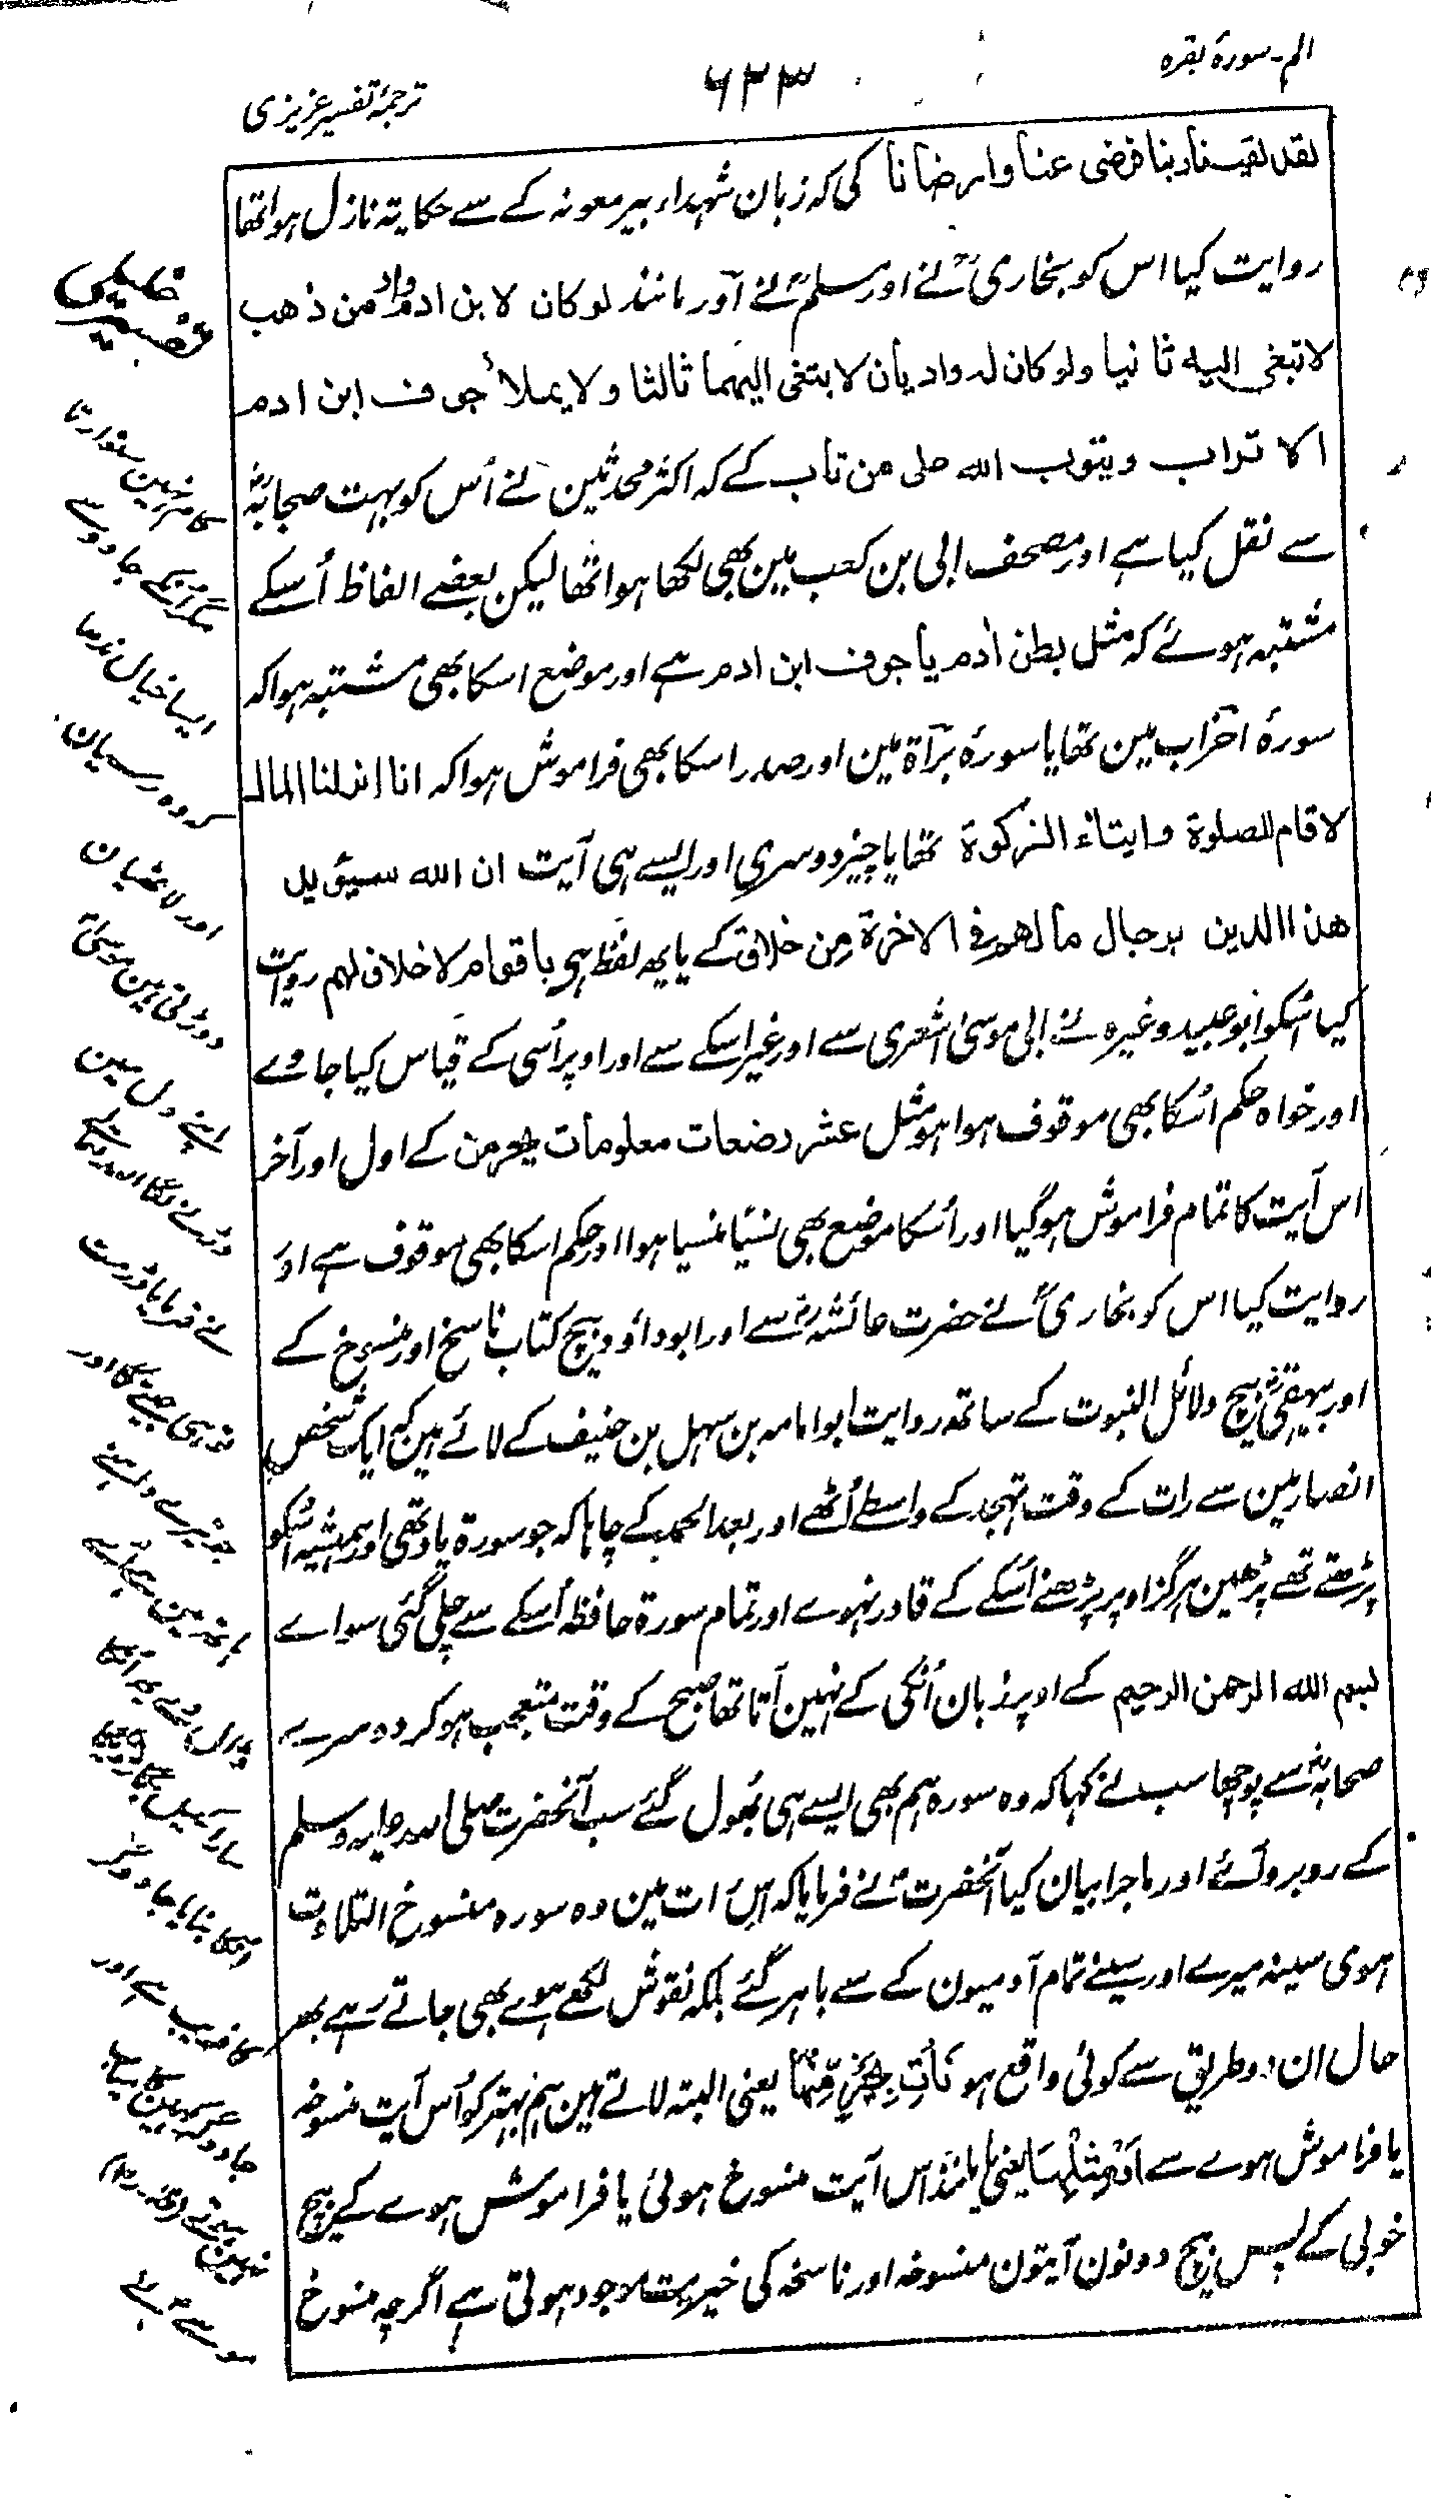 الم۔سورۂ بقرہ
۶۳۳
ترجمۂ تفسیر عزیزی
لقد لقینا ربنا فرضی عنا وارضانا کی کہ زبان شہداء بیر معونہ کے سے حکایتہ نازل ہوا تھا
روایت کیا اس کو بخاریؒ نے اور مسلمؒ نے اور مانند لو کان لابن ادم واد من ذهب
لابتغی الیه ثانیا ولو کان له وادیان لابتغی الیهما ثالثا ولا یملأ جوف ابن ادم
الا تراب ویتوب الله علی من تاب کے کہ اکثر محدثین نے اُس کو بہت صحابہؓ
سے نقل کیا ہے اور مصحف ابی بن کعب مین بھی لکھا ہوا تھا لیکن بعضے الفاظ اُسکے
مشتبہ ہوئے کہ مثل بطن ادم یا جوف ابن ادم ہے اور موضع اسکا بھی مشتبہ ہوا کہ
سورۂ احزاب مین تھا یا سورۂ برآۃ مین اور صدر اسکا بھی فراموش ہوا کہ انا انزلنا المال
لاقام الصلوة وایتاء الزکوة تھا یا چیز دوسری اور ایسے ہی آیت ان الله سیؤید
هذا الدین برجال مالهم فی الاخرة من خلاق کے یا یہ لفظ ہی باقوام لاخلاق لهم روایت
کیا اسکو ابو عبید وغیرہ نے ابی موسیٰ اشعری سے اور غیر اسکے سے اور اوپر اُسی کے قیاس کیا جاوے
اور خواہ حکم اُسکا بھی موقوف ہوا ہو مثل عشر رضعات معلومات یحرمن کے اول اور آخر
اس آیت کا تمام فراموش ہوگیا اور اُسکا موضع بھی نسیًا منسیا ہوا اور حکم اسکا بھی موقوف ہے اور
روایت کیا اس کو بخاریؒ نے حضرت عائشہؓ سے اور ابوداؤد بیچ کتاب ناسخ اور منسوخ کے
اور بیہقیؒ بیچ دلائل النبوت کے ساتھ روایت ابوامامہ بن سہل بن حنیف کے لائے ہین کہ ایک شخص
انصار مین سے رات کے وقت تہجد کے واسطے اُٹھے اور بعد الحمد کے چاہا کہ جو سورۃ یاد تھی اور ہمیشہ اُسکو
پڑھتے تھے پڑھین ہرگز اوپر پڑھنے اُسکے کے قادر نہوے اور تمام سورۃ حافظہ اُسکے سے چلی گئی سواے
بسم الله الرحمن الرحیم کے اوپر زبان اُنکی کے نہین آتا تھا صبح کے وقت متعجب ہوکر دوسرے
صحابہؓ سے پوچھا سب نے کہا کہ وہ سورہ ہم بھی ایسے ہی بُھول گئے سب آنحضرت صلی اللہ علیہ وسلم
کے روبرو آئے اور ماجرا بیان کیا آنحضرتؐ نے فرمایا کہ اس رات مین وہ سورہ منسوخ التلاوت
ہوی سینہ میرے اور سینے تمام آدمیون کے سے باہر گئے بلکہ نقوش لکھے ہوے بھی جاتے رہے بہر
حال ان دو طریق سے کوئی واقع ہو نَأْتِ بِخَیْرٍ مِّنْهَا یعنی البتہ لاتے ہین ہم بہتر کو اُس آیت منسوخہ
یا فراموش ہوے سے اَوْ مِثْلِهَا یعنی یا مانند اس آیت منسوخ ہوئی یا فراموش ہوے کے بیچ
خوبی کے پس بیچ دونون آیتون منسوخہ اور ناسخہ کی خیریت موجود ہوتی ہے اگرچہ منسوخ
ایسا خیال بندھا
کہ وہ رسیان
اور لاٹھیان
دوڑتی ہین موسیٰؑ
اپنے دل مین
نے فرمایا